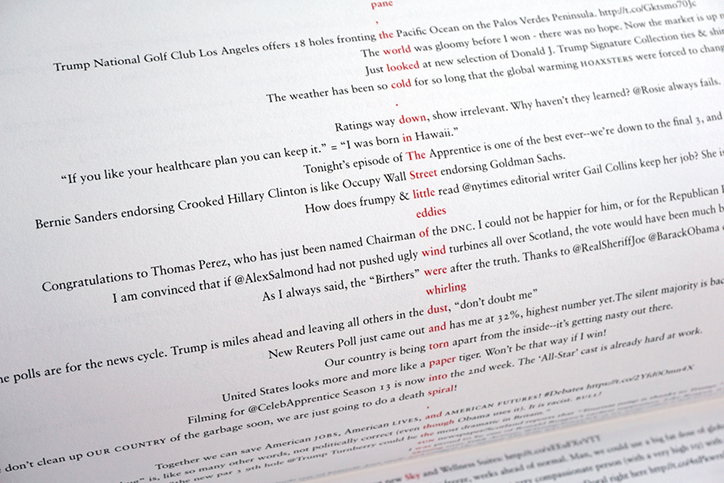 pane
,
Trump National Golf Club Los Angeles offers 18 holes fronting the Pacific Ocean on the Palos Verdes Peninsula. http://t.co/Gktsmo70Jc
The world was gloomy before I won - there was no hope. Now the market is up n
Just looked at new selection of Donald J. Trump Signature Collection ties & shi
The weather has been so cold for so long that the global warming HOAXSTERS were forced to chang
.
Ratings way down, show irrelevant. Why haven't they learned? @Rosie always fails.
“If you like your healthcare plan you can keep it.” = “I was born in Hawaii.”
Tonight's episode of The Apprentice is one of the best ever--we're down to the final 3, and
Bernie Sanders endorsing Crooked Hillary Clinton is like Occupy Wall Street endorsing Goldman Sachs.
How does frumpy & little read @nytimes editorial writer Gail Collins keep her job? She is
eddies
Congratulations to Thomas Perez, who has just been named Chairman of the DNC. I could not be happier for him, or for the Republican
I am convinced that if @AlexSalmond had not pushed ugly wind turbines all over Scotland, the vote would have been much b
As I always said, the “Birthers” were after the truth. Thanks to @RealSheriffJoe @BarackObama
whirling
he polls are for the news cycle. Trump is miles ahead and leaving all others in the dust, “don't doubt me”
New Reuters Poll just came out and has me at 32%, highest number yet.The silent majority is bac
Our country is being torn apart from the inside--it's getting nasty out there.
United States looks more and more like a paper tiger. Won't be that way if I win!
Filming for @CelebApprentice Season 13 is now into the 2nd week. The ‘All-Star’ cast is already hard at work.
don't clean up OUR COUNTRY of the garbage soon, we are just going to do a death spiral!
.
Together we can save American JOBS, American LIVES, and AMERICAN FUTURES! #Debates
is, like so many other words, not politically correct (even though Obama uses it). It is racist. BULL!
the new par 3 9th hole @Trump Turnberry could be the most dramatic in Britain.”
new Sky and Wellness Suites:
weeks ahead of normal. Man, we could use a big fat dose of glob
compassionate person (with a very high IQ) with